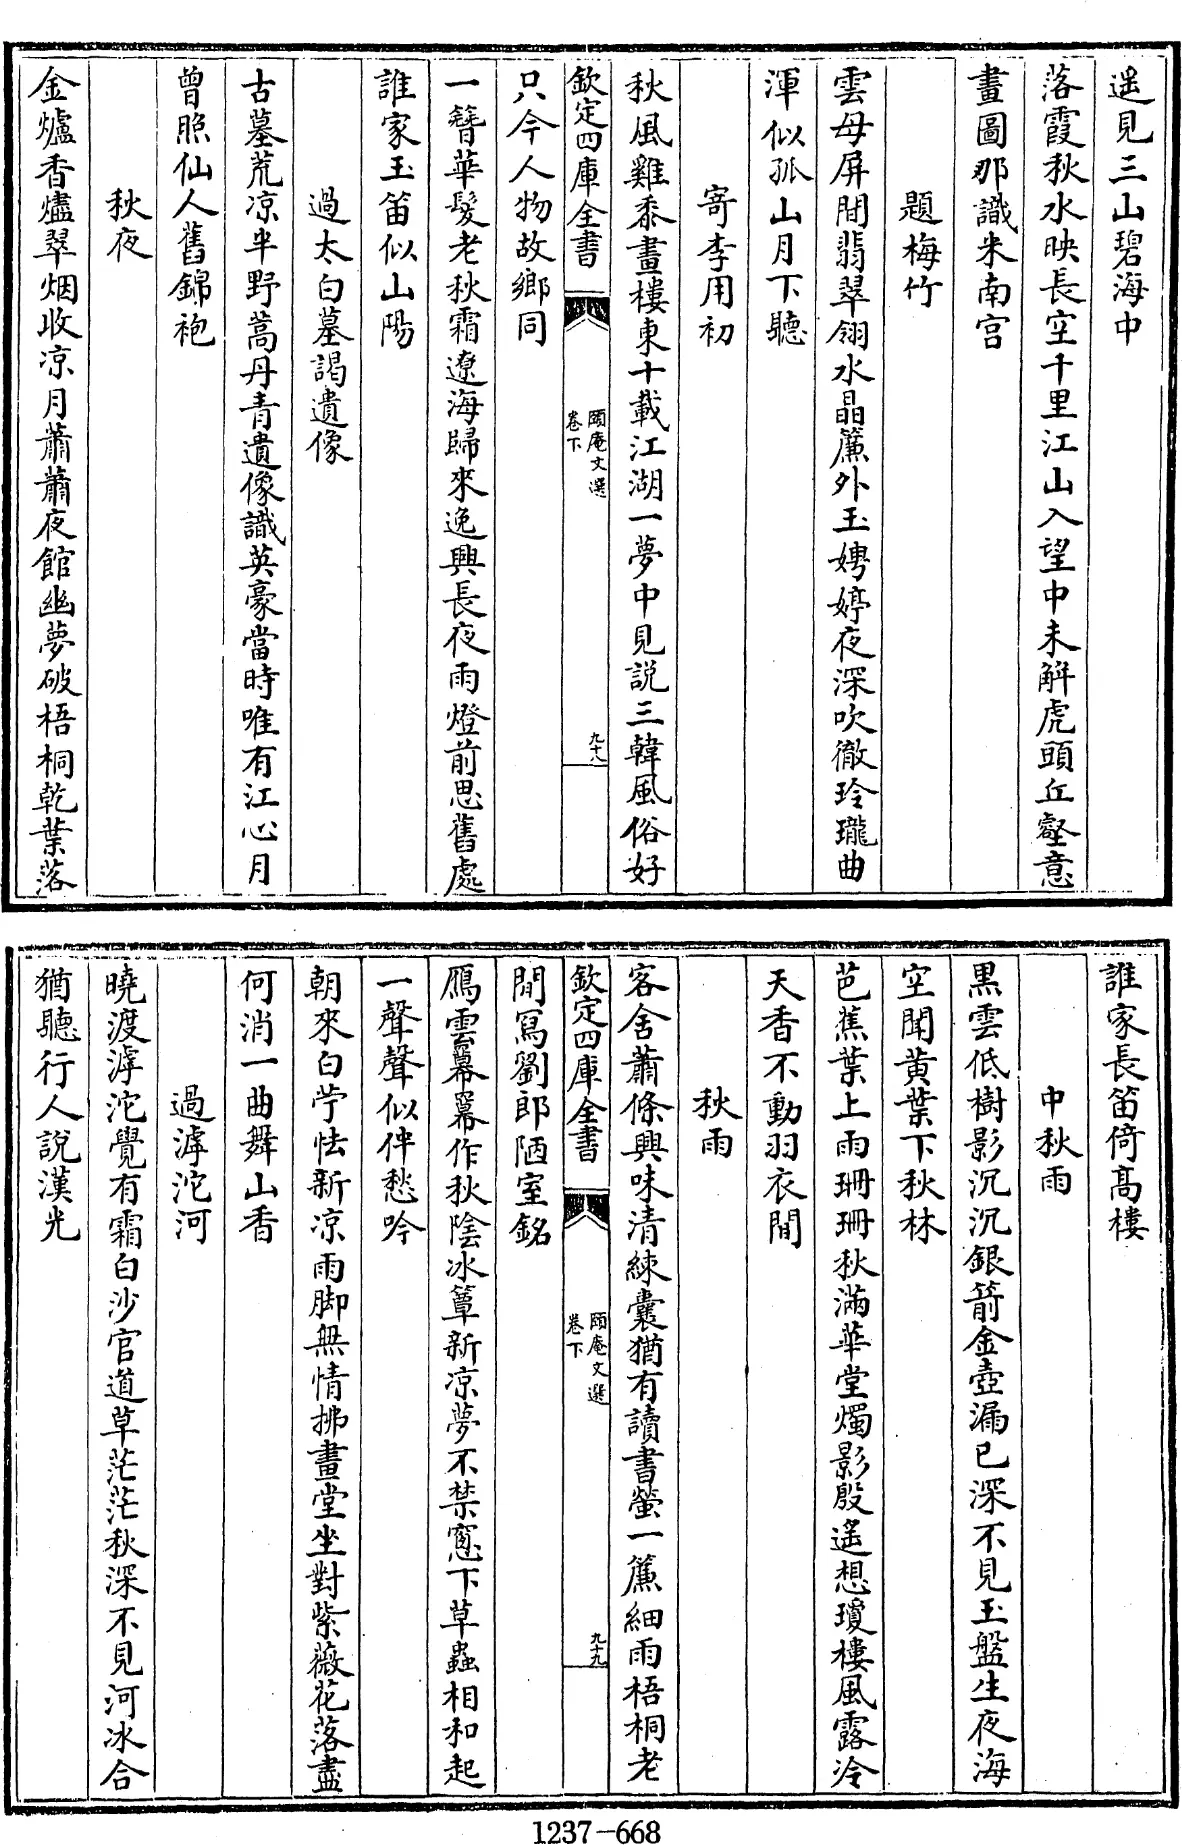 遥見三山碧海中
落霞秋水映長空千里江山入望中未解虎頭丘壑意
畫圖那識米南宫
題梅竹
雲母屏間翡翠翎水晶簾外玉娉婷夜深吹徹玲瓏曲
渾似孤山月下聽
寄李用初
秋風雞黍畫樓東十載江湖一夢中見説三韓風俗好
欽定四庫全書
頤庵文選
卷下
九十八
只今人物故鄉同
一簪華髮老秋霜遼海歸來逸興長夜雨燈前思舊處
誰家玉笛似山陽
過太白墓謁遺像
古墓荒凉半野蒿丹青遺像識英豪當時唯有江心月
曾照仙人舊錦袍
秋夜
金爐香燼翠烟收凉月蕭蕭夜館幽夢破梧桐乾葉落
誰家長笛倚髙樓
中秋雨
黒雲低樹影沉沉銀箭金壺漏已深不見玉盤生夜海
空聞黄葉下秋林
芭蕉葉上雨珊珊秋滿華堂燭影殷遥想瓊樓風露冷
天香不動羽衣間
秋雨
客舍蕭條興味清練囊猶有讀書螢一簾細雨梧桐老
欽定四庫全書
頤庵文選
卷下
九十九
閒寫劉郎陋室銘
鴈雲羃羃作秋陰冰簟新凉夢不禁窻下草蟲相和起
一聲聲似伴愁吟
朝來白苧怯新凉雨脚無情拂畫堂坐對紫薇花落盡
何消一曲舞山香
過滹沱河
曉渡滹沱覺有霜白沙官道草茫茫秋深不見河冰合
猶聽行人説漢光
1237-668